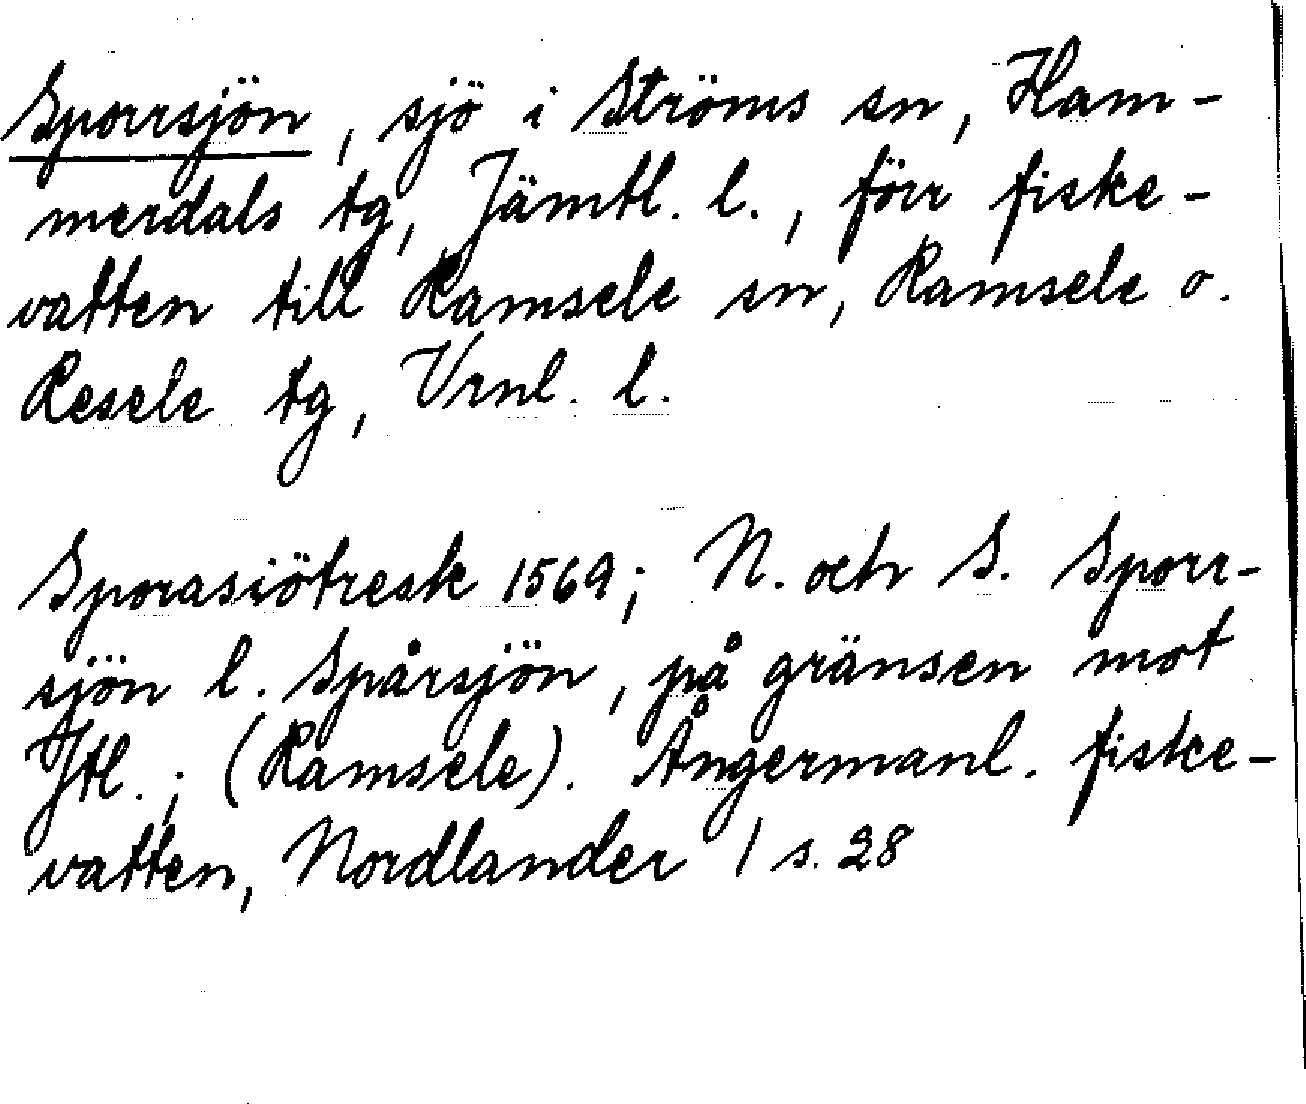 Sporrsjön, sjö i Ströms sn, Ham-
merdals tg, Jämtl. l., förr fiske-
vatten till Ramsele sn, Ramsele o.
Resele tg, Vrnl. l.
Sporasiötresk 1569; N. och S. Sporr-
sjön l. Spårsjön, på gränsen mot
Jtl.; (Ramsele). Ångermanl. fiske-
vatten, Nordlander 1 s. 28